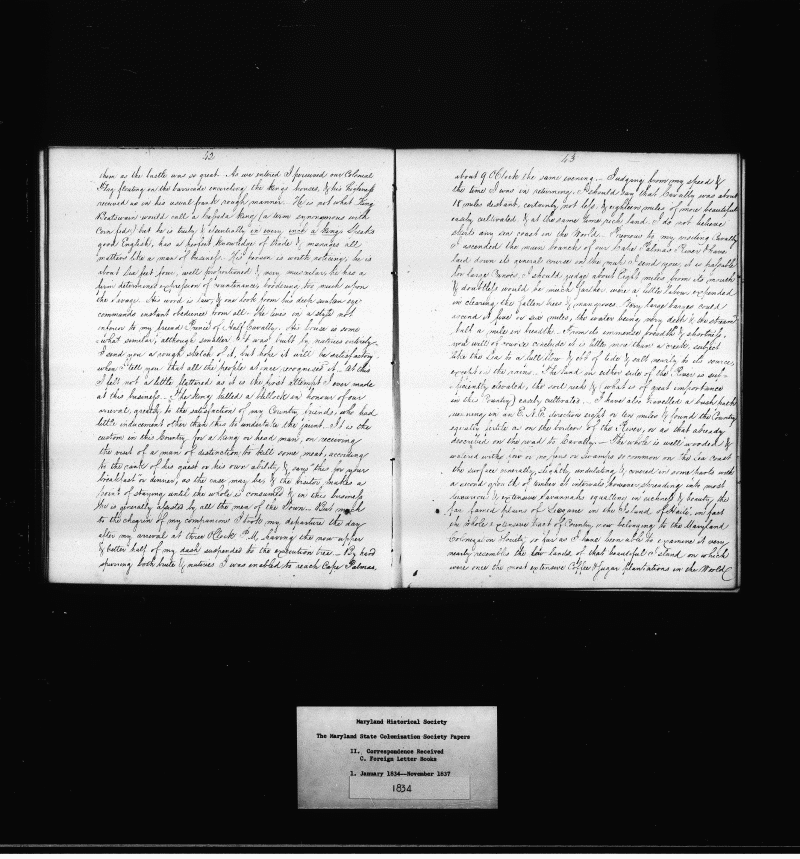 42
them as the battle was so great. As we entered I perceived our Colonial
Flag floating on the barricade encircling the Kings houses, & his Highness
received us in his usual frank rough manner. He is not what King
would call a (a term synonymous with
Corn fed) but he is truly & essentially in every, once a King. Speaks
good English, has a perfect knowledge of trade & manages all
matters like a man of business. His person is worth noticing, he is
about six feet four, well proportioned & very muscular he has a
firm determined expression of countenance, bordering too much upon
the savage. His word is law, & one look from his deep sunken eye
commands instant obedience from all. He lives in a style not
inferior to my friend Prince of Half Cavally. His house is some
what similar, although smaller & it was built by natives entirely.
I send you a rough sketch of it, but hope it will be satisfactory
when I tell you that all the people at once recognised it. At this
I felt not a little flattered as it is the first attempt I ever made
at this business. The King killed a bullock in honour of our
arrival, greatly to the satisfaction of my Country friends, who had
little inducement other than this to undertake the jaunt. It is the
custom in this Country, for a King or head man, on receiving
the visit of a man of distinction to kill some meat, according
to the rank of his guest or his own ability, & says this for your
breakfast or dinner, as the case may be, & the visitor makes a
point of staying until the whole is consumed & in this business
He is generally assisted by all the men of the Town. But much
to the chagrin of my companions I took my departure the day
after my arrival at three OClock P.M. having the now upper
& better half of my dash suspended to the . By hard
spurring both brute & natives I was enabled to reach Cape Palmas
43
about 9 OClock the same evening. Judging from my speed &
the time I was in returning, I should say that Cavally was about
18 miles distant, certainly not less, & eighteen miles of more beautiful
easily cultivated & at the same time rich land, I do not believe
skirts any sea coast in the World. Previous to my visiting Cavally
I ascended the main branch of our Cape Palmas River & have
laid down its general course on the map I send you, it is passable
for large Canoes I should judge about Eight miles from its mouth
& doubtless would be much farther were a little labour expended
in clearing the fallen trees & mangroves. Very large barges could
ascend it five or six miles, the water being very deep & the stream
half a mile in breadth. From its immense breadth & shortness,
you will of course conclude it is little more than a creek, subject
like the Sea to a full flow & ebb of tide & salt nearly to its source,
except in the rains. The land on either side of the River is suf-
ficiently elevated, the soil rich & (what is of great importance
in this Country) easily cultivated. I have also travelled a bush path
running in an direction eight or ten miles & found the Country
equally fertile as on the borders of the River, or as that already
described on the road to Cavally. The whole is well wooded &
watered with few or no fens or swamps so common on the sea coast
the surface generally slightly undulating & covered in some parts with
a second growth of timber at intervals however spreading into most
luxuriant & extensive Savannahs equalling in richness & beauty the
far famed plains of Leogane in the Island of Haiti, in fact
the whole extensive tract of Country, now belonging to the Maryland
Colonization Society, so far as I have been able to examine it very
nearly resembles the low lands of that beautiful Island on which
were once the most extensive Coffee & Sugar Plantations in the World
Maryland Historical Society
The Maryland State Colonization Society Papers
II. Correspondence Received
C. Foreign Letter Books
1. January 1834--November 1837
1834